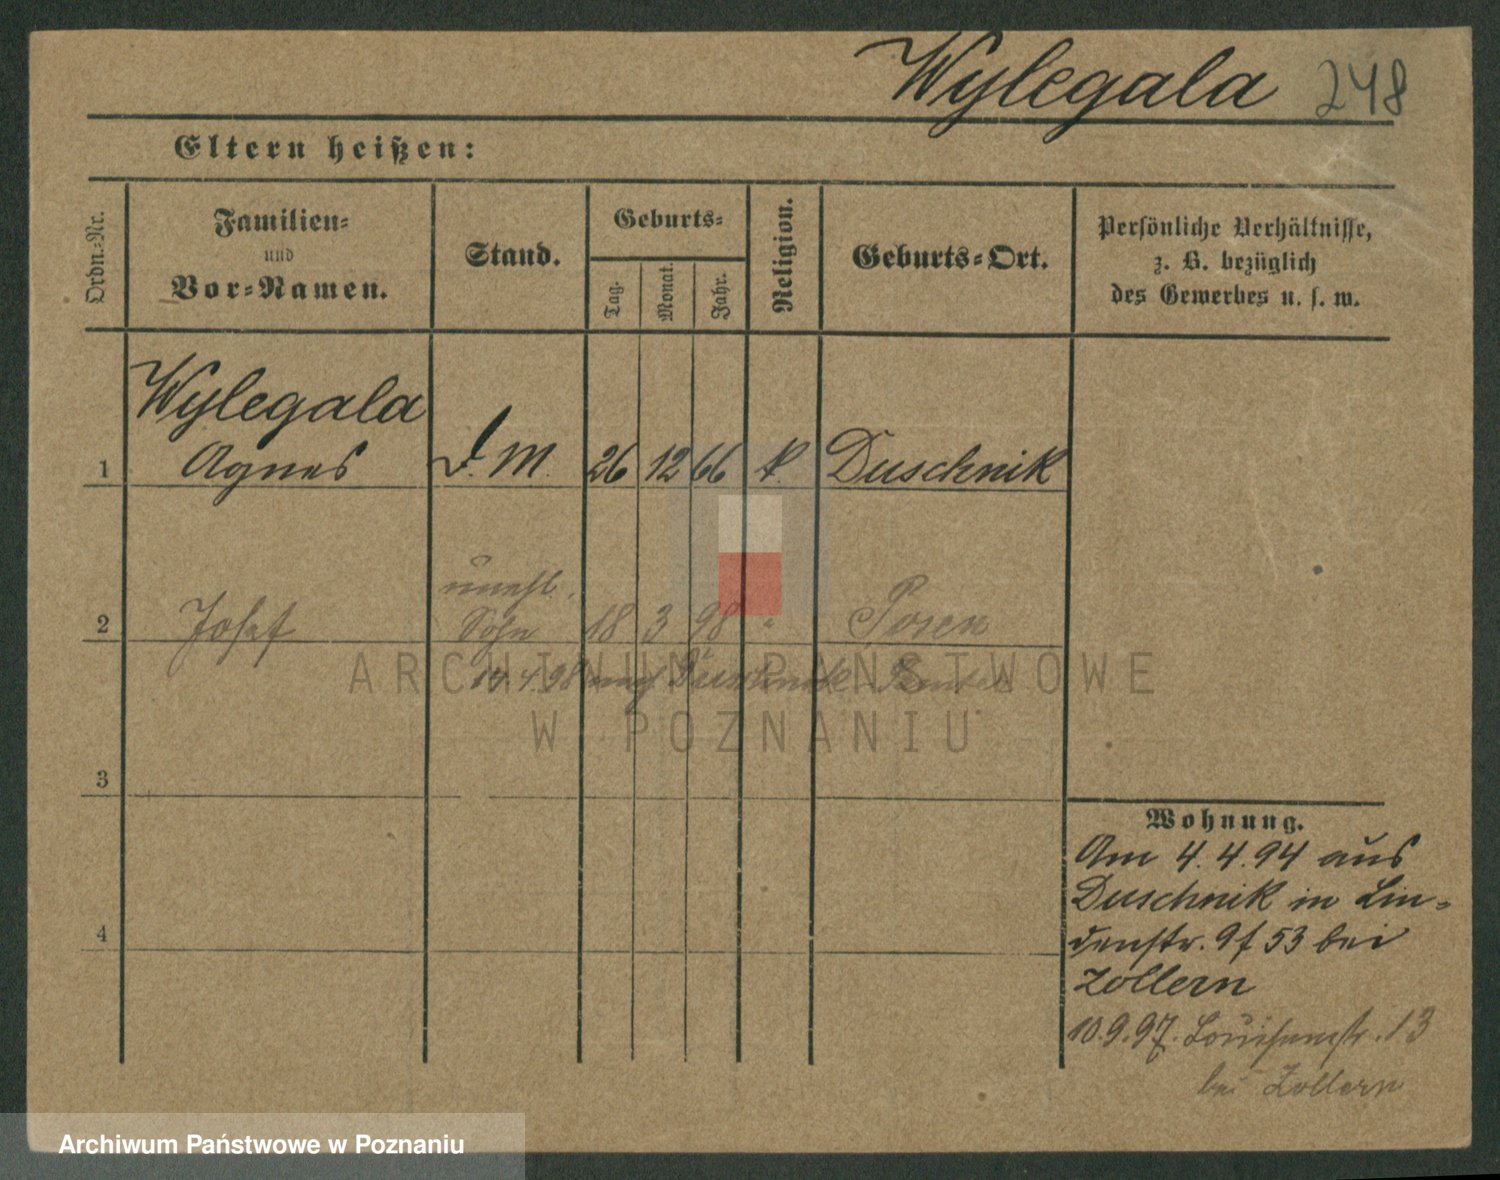 Wylegala 248
Eltern heißen:
Ordn.-Nr.
Familien-
und
Vor-Namen.
Stand.
Geburts-
Tag.
Monat.
Jahr.
Religion.
Geburts-Ort.
Persönliche Verhältnisse,
z. B. bezüglich
des Gewerbes u. s. w.
Wylegala
1 Agnes d. M. 26 12 66 k. Duschnik
unehl.
2 Josef Sohn 18 3 98 " Posen
14.4.98 nach Duschnik
ARCHIWUM PAŃSTWOWE
W POZNANIU
3
4
Wohnung.
Am 4.4.94 aus
Duschnik in Lin-
denstr. 9 f 53 bei
Zollern
10.9.97. Louisenstr. 13
bei Zollern
Archiwum Państwowe w Poznaniu